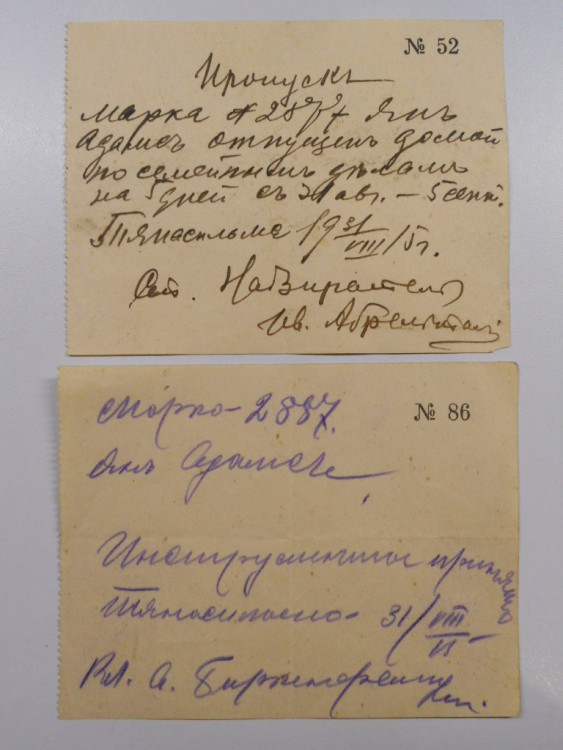 № 52
Пропускъ
марка № 2887 Янъ
Адамсъ отпущенъ домой
по семейнымъ дѣламъ
на 5 дней съ 31 авг. – 5 сент.
Тянасильма 19 31/VIII 15 г.
Ст. Надзиратель
Ив.
№ 86
марка 2887.
Янъ Адамсъ
Инструменты принялъ
31/VIII
Вл. А.